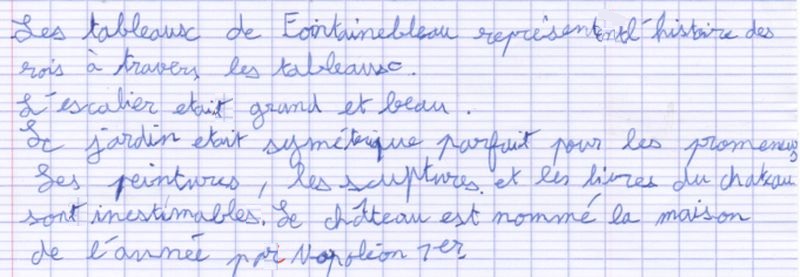 Les tableaux de Fontainebleau représentent l'histoire des
rois à travers les tableaux.
L'escalier etait grand et beau.
Le jardin etait symétérique parfait pour les promeneus
Les peintures, les sculptures et les livres du chateau
sont inestimables. Le château est nommé la maison
de l'année par Napoléon 1er